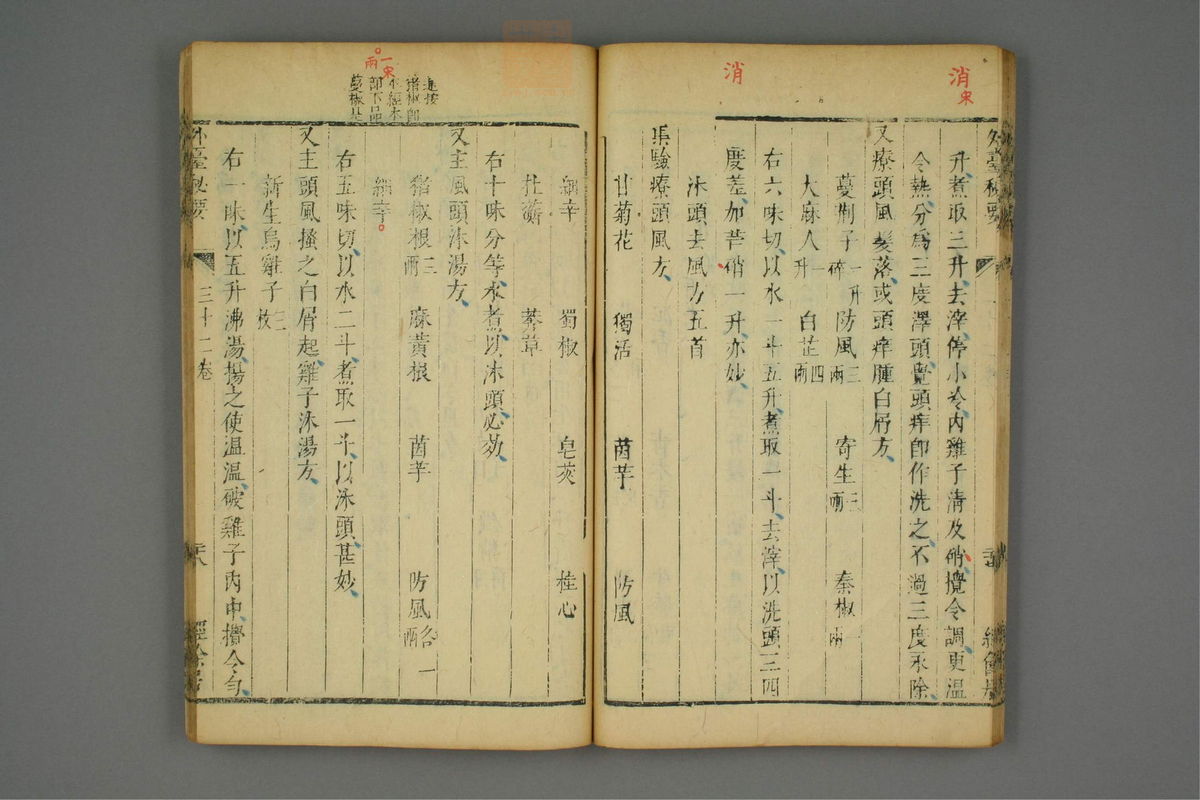 消
消
宋
外臺秘要
升煮取三升去滓停小冷內雞子清及硝攪令調更溫
令熱分爲三度澤頭覺頭痒卽作洗之不過三度永除
又療頭風髮落或頭痒腫白屑方
蔓荊子一升碎 防風三兩 寄生三兩 秦椒一兩
大麻人一升 白芷四兩
右六味切以水一斗五升煮取一斗去滓以洗頭三四
度差加芒硝一升亦妙
沐頭去風方五首
集驗療頭風方
甘菊花 獨活 茵芋 防風
細辛 蜀椒 皂莢 桂心
杜蘅 莽草
右十味分等水煮以沐頭必効
又主風頭沐湯方
豬椒根三兩 麻黃根 茵芋 防風各一兩
細辛
右五味切以水二斗煮取一斗以沐頭甚妙
又主頭風搔之白屑起雞子沐湯方
新生烏雞子三枚
右一味以五升沸湯揚之使溫溫破雞子內中攪令勻
外臺秘要
三十二卷
經餘居
一兩
宋